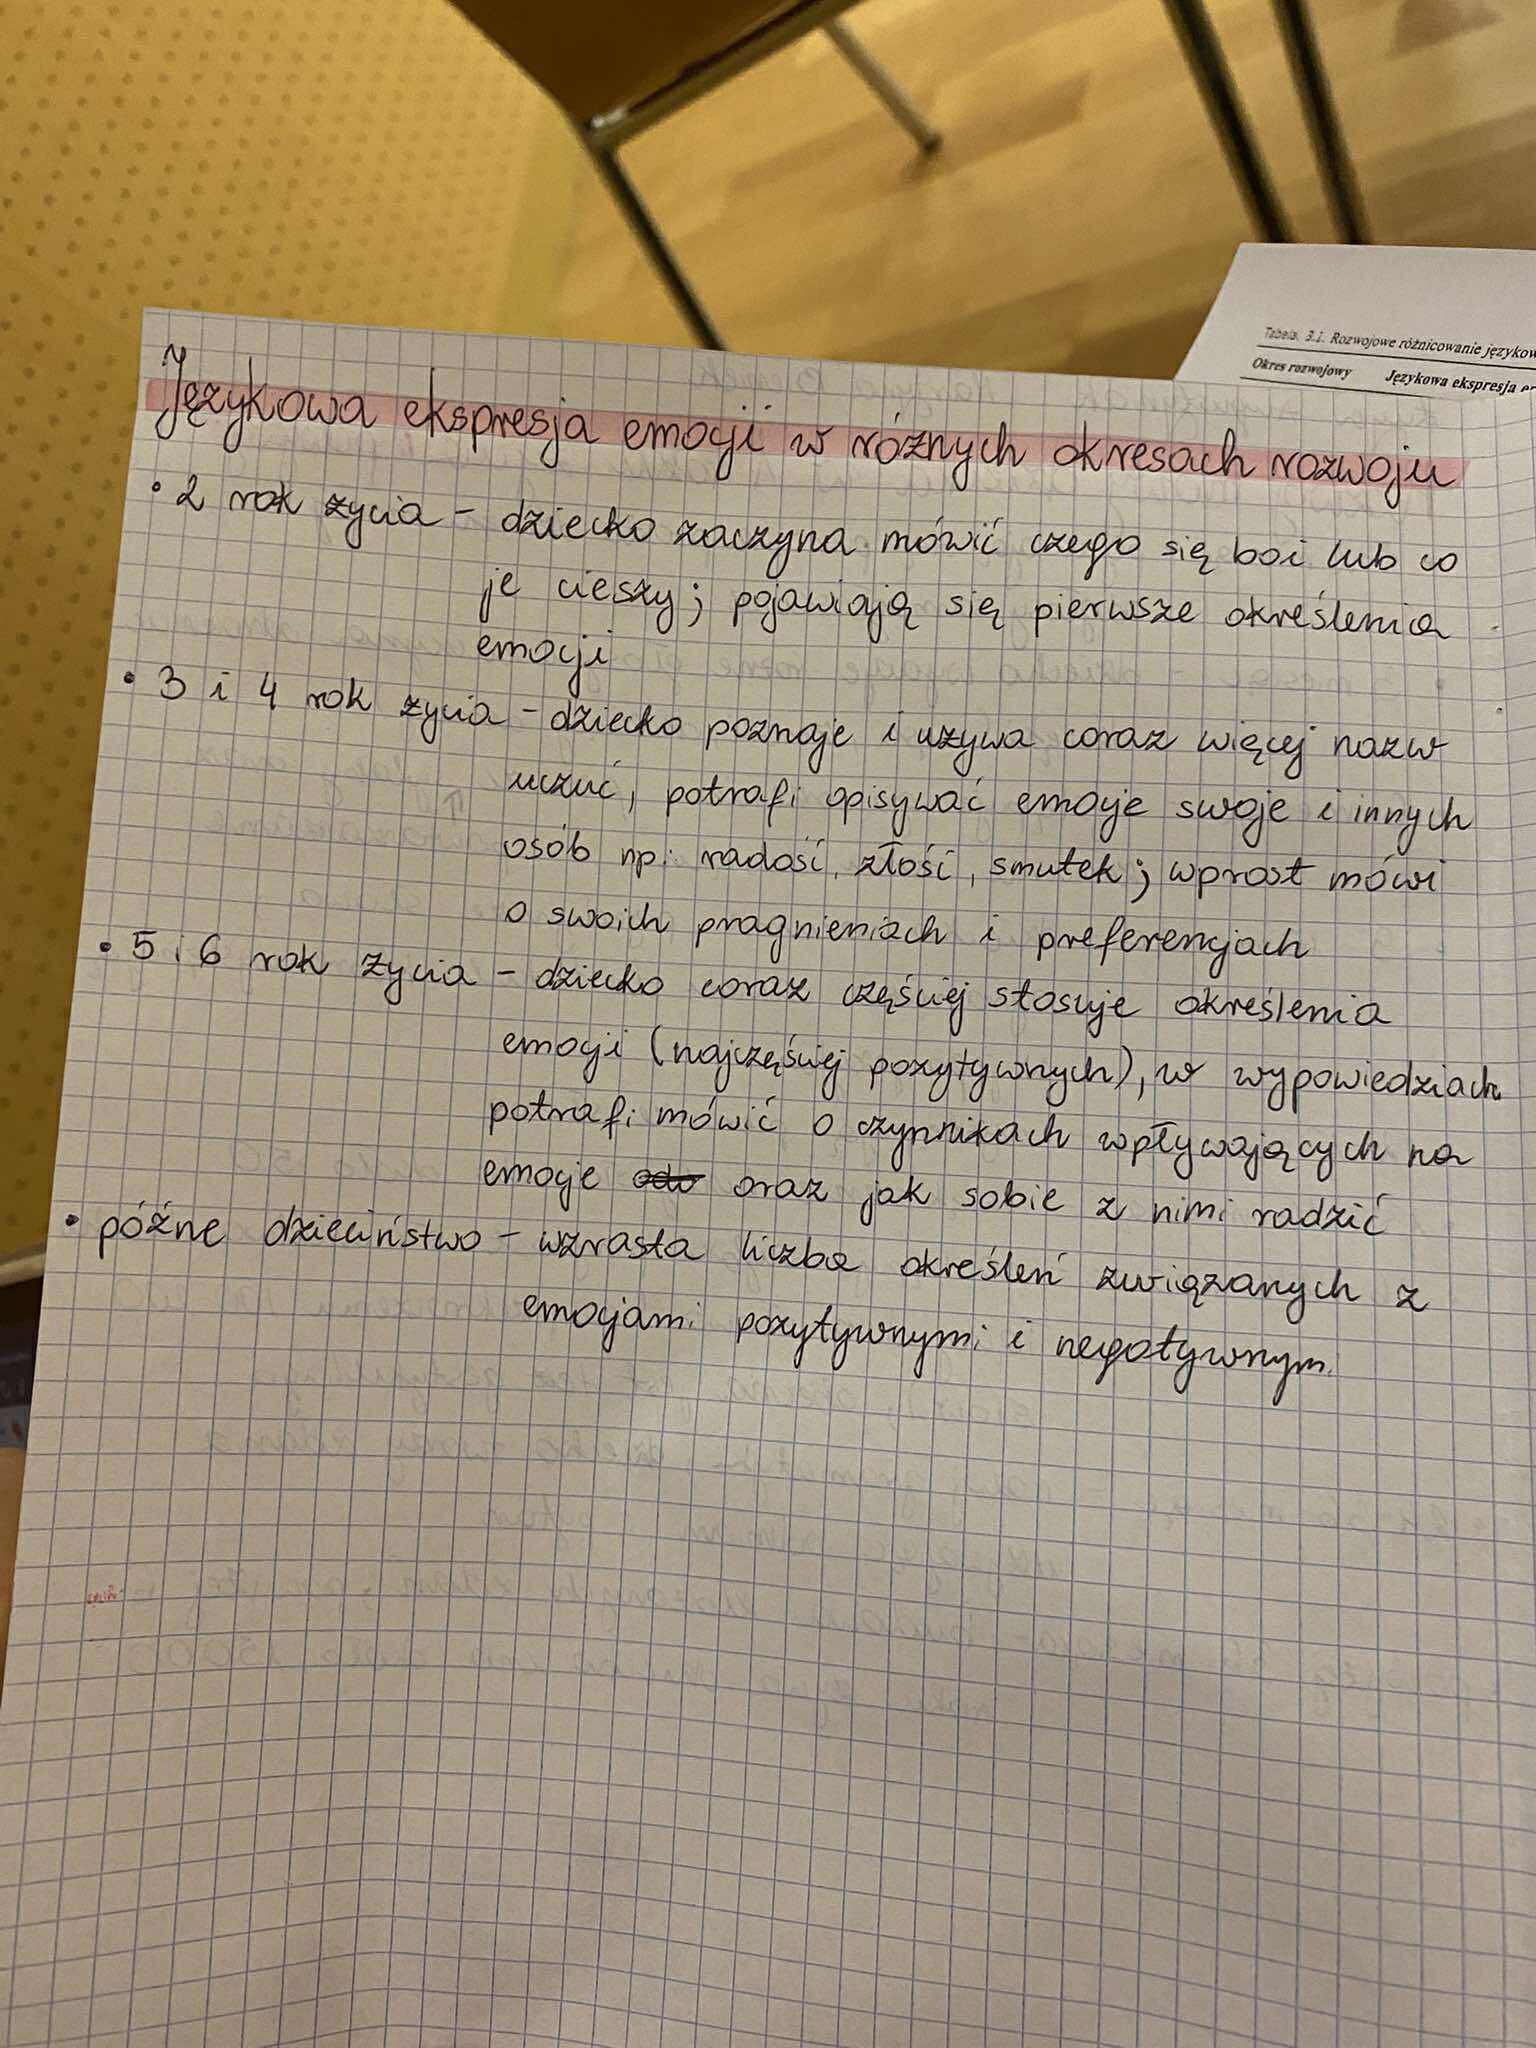 Tabela. 3.1. Rozwojowe różnicowanie
Okres rozwojowy Językowa ekspresja
Językowa ekspresja emocji w różnych okresach rozwoju
• 2 rok życia - dziecko zaczyna mówić czego się boi lub co
je cieszy; pojawiają się pierwsze określenia
emocji
• 3 i 4 rok życia - dziecko poznaje i używa coraz więcej nazw
uczuć, potrafi opisywać emocje swoje i innych
osób np: radość, złość, smutek; wprost mówi
o swoich pragnieniach i preferencjach
• 5 i 6 rok życia - dziecko coraz częściej stosuje określenia
emocji (najczęściej pozytywnych), w wypowiedziach
potrafi mówić o czynnikach wpływających na
emocje oraz jak sobie z nimi radzić
• późne dzieciństwo - wzrasta liczba określeń związanych z
emocjami pozytywnymi i negatywnymi